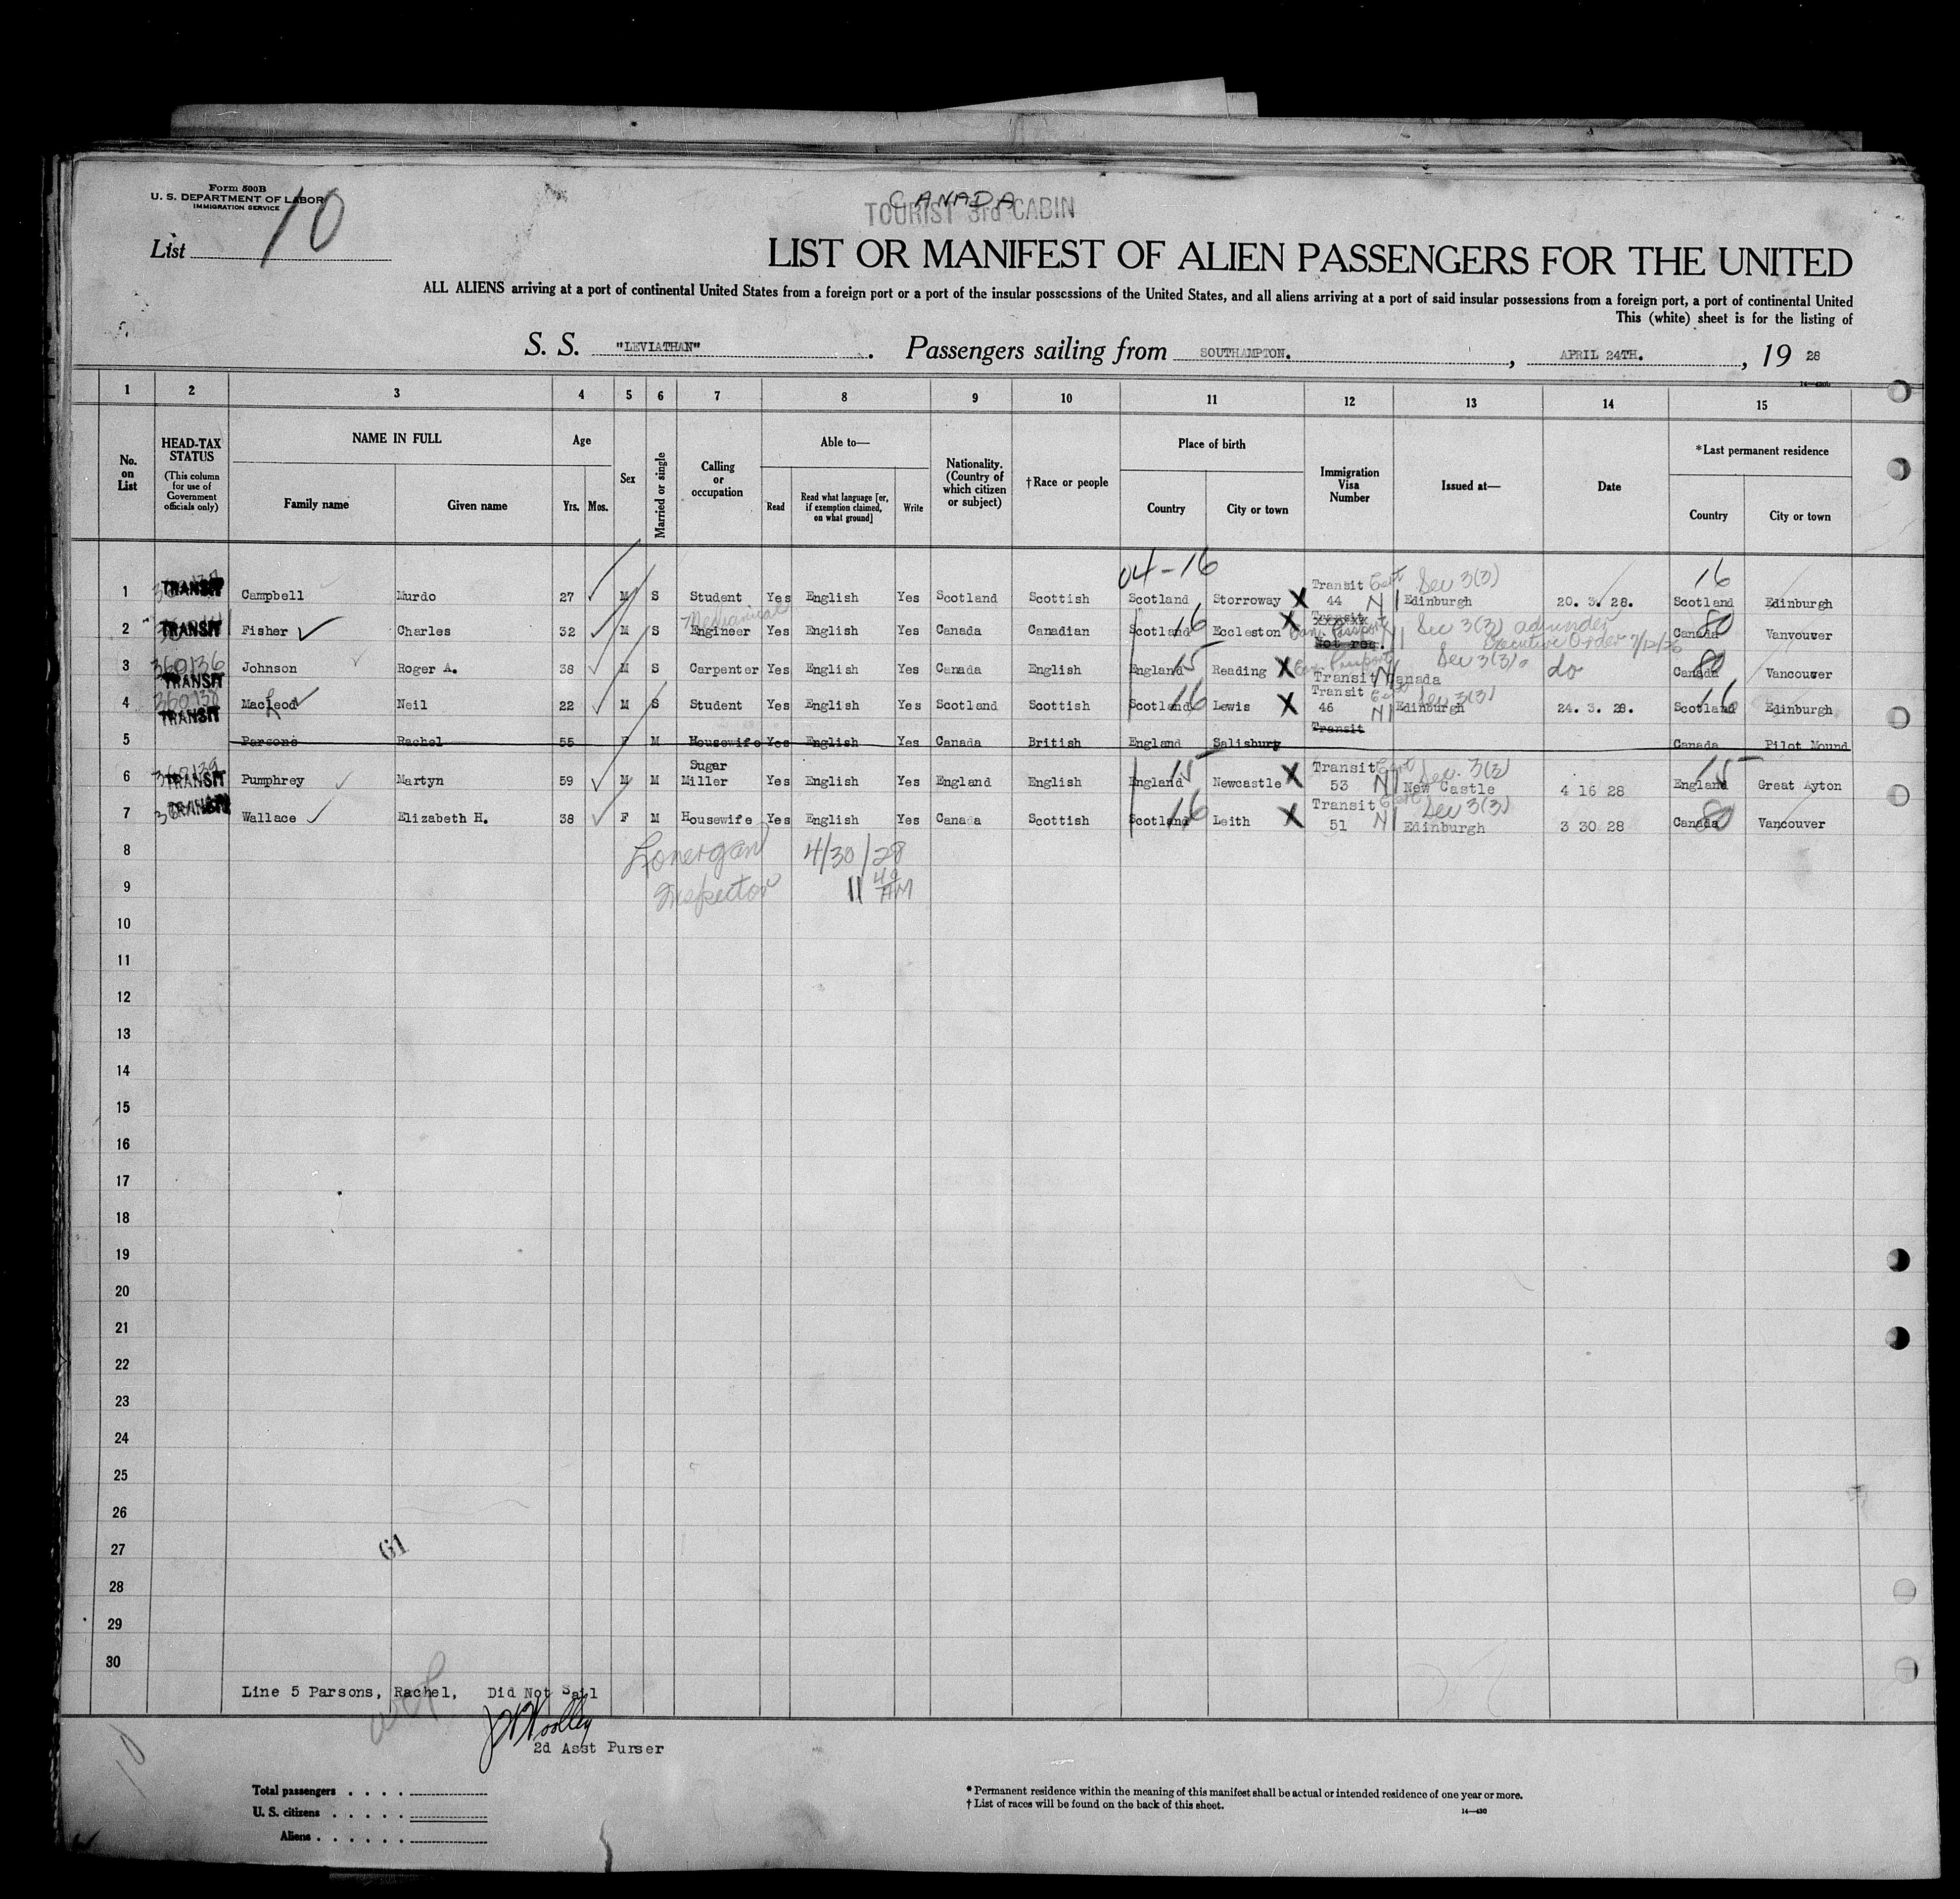 Form 500B
U. S. DEPARTMENT OF LABOR
IMMIGRATION SERVICE
List 10
CANADA
TOURIST 3rd CABIN
LIST OR MANIFEST OF ALIEN PASSENGERS FOR THE UNITED
ALL ALIENS arriving at a port of continental United States from a foreign port or a port of the insular possessions of the United States, and all aliens arriving at a port of said insular possessions from a foreign port, a port of continental United
This (white) sheet is for the listing of
S. S. "LEVIATHAN" . Passengers sailing from SOUTHAMPTON. , APRIL 24TH. , 19 28
1 2 3 4 5 6 7 8 9 10 11 12 13 14 15
No. on List
HEAD-TAX STATUS
(This column for use of Government officials only)
NAME IN FULL
Family name Given name
Age
Yrs. Mos.
Sex
Married or single
Calling or occupation
Able to—
Read
Read what language [or, if exemption claimed, on what ground]
Write
Nationality. (Country of which citizen or subject)
†Race or people
Place of birth
Country City or town
Immigration Visa Number
Issued at—
Date
*Last permanent residence
Country City or town
04-16
1 TRANSIT Campbell Murdo 27 M S Student Yes English Yes Scotland Scottish Scotland Storroway X Transit 44 NI Sec 3(3) Edinburgh 20. 3. 28. 16 Scotland Edinburgh
2 TRANSIT Fisher Charles 32 M S Mechanical Engineer Yes English Yes Canada Canadian Scotland 16 Eccleston X Transit Not req. Sec 3(3) adm under Executive Order 7/12/26 Canada 80 Vanvouver
3 360136 TRANSIT Johnson Roger A. 38 M S Carpenter Yes English Yes Canada English England 15 Reading X Can. Passport Transit Canada Sec 3(3) do Canada 80 Vancouver
4 TRANSIT MacLeod Neil 22 M S Student Yes English Yes Scotland Scottish Scotland 16 Lewis X Transit 46 NI Sec 3(3) Edinburgh 24. 3. 28. Scotland 16 Edinburgh
5 Parsons Rachel 55 F M Housewife Yes English Yes Canada British England Salisbury Transit Canada Pilot Mound
6 TRANSIT Pumphrey Martyn 59 M M Sugar Miller Yes English Yes England English England 15 Newcastle X Transit 53 NI Sec. 3(3) New Castle 4 16 28 England 15 Great Ayton
7 TRANSIT Wallace Elizabeth H. 38 F M Housewife Yes English Yes Canada Scottish Scotland 16 Leith X Transit 51 NI Sec 3(3) Edinburgh 3 30 28 Canada 80 Vancouver
8 Lonergan 4/30/28
9 Inspector 11 40 AM
10
11
12
13
14
15
16
17
18
19
20
21
22
23
24
25
26
27 61
28
29
30
Line 5 Parsons, Rachel, Did Not Sail
J W Woolley
2d Asst Purser
10
Total passengers
U. S. citizens
Aliens
* Permanent residence within the meaning of this manifest shall be actual or intended residence of one year or more.
† List of races will be found on the back of this sheet.
14—430